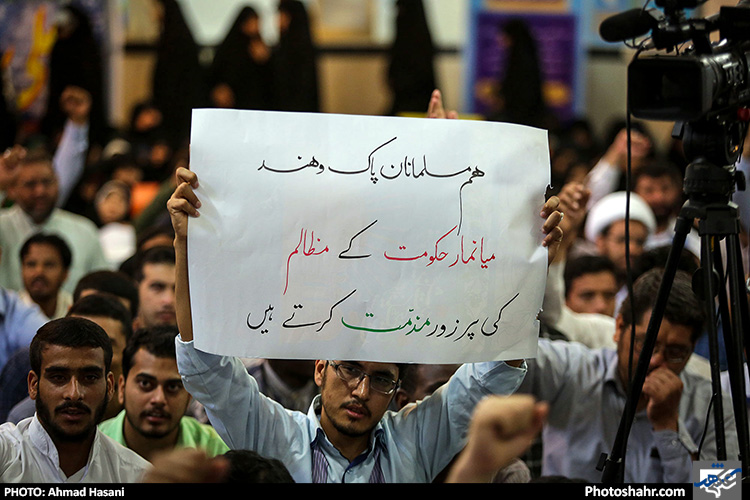 ہم مسلمانان پاک و ہند
میانمار حکومت کے مظالم
کی پر زور مذمّت کرتے ہیں
Photoshahr.com
PHOTO: Ahmad Hasani
Photoshahr.com